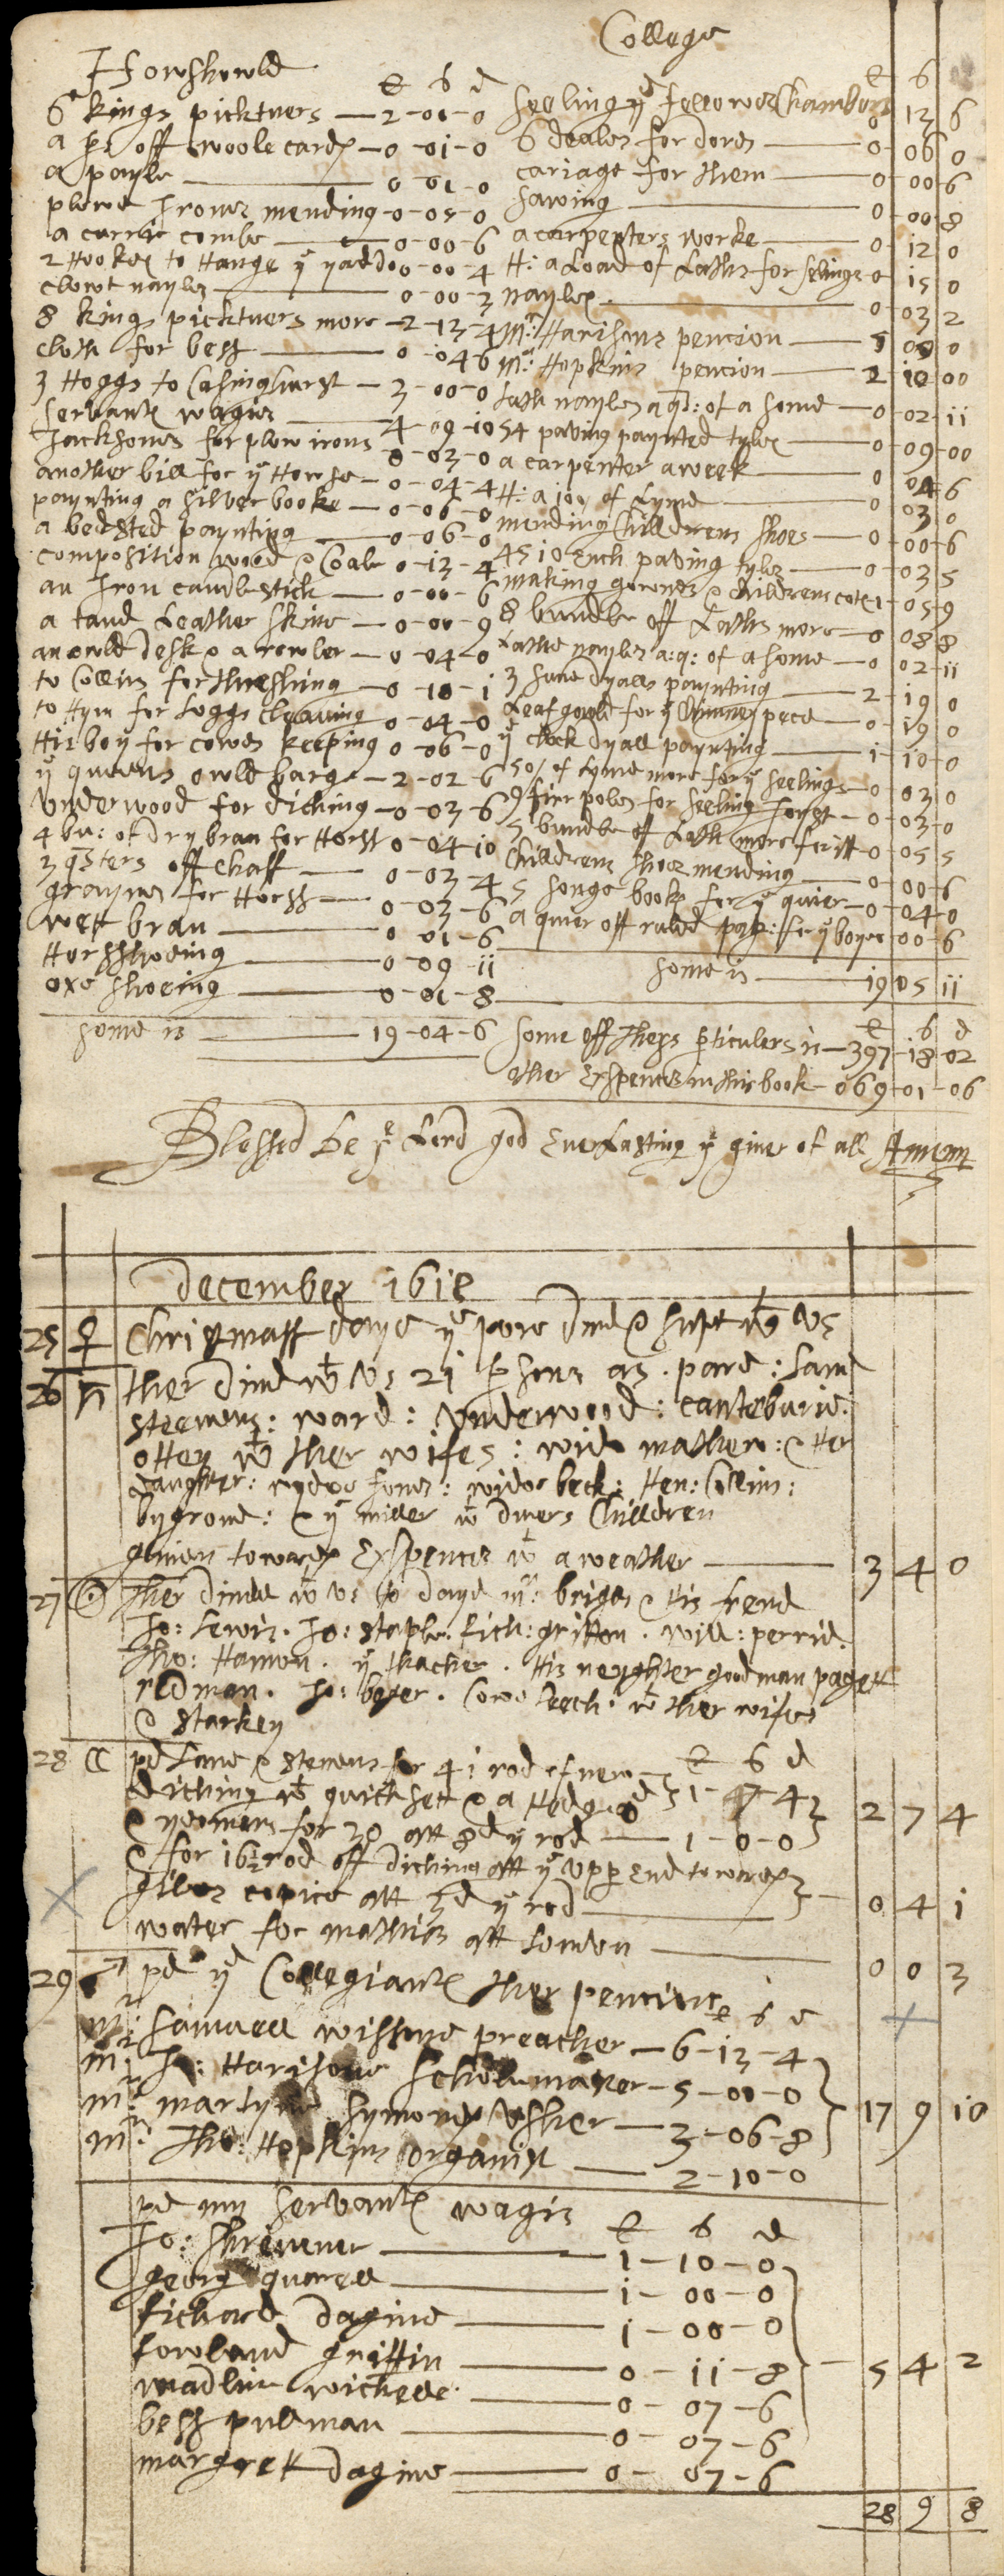 Howshowld
£ s d
6 kings picktuers — 2 - 01 - 0
a pr off woole cards — 0 - 01 - 0
a payle — 0 01 - 0
plowe Irones mending - 0 - 05 - 0
a currie combe — 0 - 00 - 6
2 Hookes to Hange ye 0 - 00 - 4
clowt nayles — 0 - 00 - 3
8 kings picktuers more - 2 - 13 - 4
cloth for bess — 0 - 04 6
3 Hoggs to Casinghurst — 3 - 00 - 0
servants wagies — 4 - 09 - 10
Jacksones for plow irons 0 - 03 - 0
another bill for ye Howse - 0 - 04 - 4
paynting a silver booke — 0 - 06 - 0
a bedsted paynting — 0 - 06 - 0
composition wood & Coale 0 - 13 - 4
an Iron candlestick — 0 - 00 - 6
a tand Leather skine — 0 - 00 - 9
an owld desk & a rowler — 0 - 04 - 0
to Collins for threshing — 0 - 10 - 1
to Hym for Loggs cleaving 0 - 04 - 0
His boy for cowes keeping 0 - 06 - 0
ye queens owld barge — 2 - 02 - 6
Underwood for diching — 0 - 03 - 6
4 bu: of Dry bran for Horss 0 - 04 10
3 qrsters off Chaff — 0 - 03 - 4
graynes for Horss — 0 - 03 - 6
wett bran — 0 01 - 6
Horsshoeing — 0 - 09 - 11
oxe shoeing — 0 - 01 - 8
some is — 19 - 04 - 6
College
£ s d
Seeling ye fellowes Chambers 0 13 6
6 deales for dores — 0 - 06 0
cariage for them — 0 - 00 - 6
sawing — 0 - 00 - 8
a carpenters worke — 0 - 12 0
H: a Load of Laths for selinge 0 15 0
nayles — 0 03 2
Mr: Harisons pencion — 5 00 0
Mr: Hopkins pencion — 2 10 00
Lath nayles a qr: of a some — 0 02 - 11
54 paving paynted tyles — 0 - 09 - 00
a carpenter a week — 0 04 6
H: a 100 of Lyme — 0 03 0
mending Childrens shoes — 0 - 00 - 6
45 10 Inch paving tyles — 0 - 03 5
making gownes & Childrens cotes 1 - 05 - 9
8 bundle off Laths more — 0 08 8
Lathe nayles a: q: of a some — 0 02 - 11
3 sune dyalls paynting — 2 - 19 0
Leaf gowld for ye Chimney pece — 0 - 19 0
ye clock dyall paynting — 1 - 10 - 0
50/ of lyme more for ye seelings 0 03 0
9 firr poles for seeling Joyst — 0 - 03 - 0
5 bundle off Lath more for itt 0 05 5
Childrens shoes mending — 0 - 00 - 6
5 songe books for ye quier — 0 - 04 - 0
a quier off ruled pap: for ye boyes 00 - 6
some is — 19 05 11
£ s d
some off theps perticulers is — 397 - 18 - 02
other Expences in this book - 069 - 01 - 06
Blessed be ye Lord god Everlasting ye giver of all Amenn
december 1618
25 ♀ Christmass daye ye pore dind & supt wt us
26 ♄ ther dind wt us 21 persons as. pare: Lam
steevens: ward: underwood: canteburie:
otten wt ther wifes: wido mathew: & Her
daughter: wydoe Jones: widoe beck: Hen: Collins:
bygrone: & ye miller wt divers Children
given towards Expences wt a weather — 3 4 0
27 ☉ Ther dined wt us to daye mr: briggs & his frend
Jo: Lewis. Jo: Staple. Rich: gritton. will: perrid.
Tho: Hamon. ye thacher. His neyghter goodman pagett
redman. Jo: boyer. Cowe Leech. wt ther wifes
& Starkey
28 ☾ pd Lame & Stevens for 41 rod of new £ s d
diching wt quicksett & a Hedge 8d 1 - 7 - 4
& yeomans for 30 att 8d ye rod — 1 - 0 - 0 2 7 4
& for 16½ rod off diching att ye upper End towards
giles copice att 3d ye rod — 0 4 1
water for mathies att London — 0 0 3
29 ♂ pd ye Collegiants ther pencions £ s d
mr: Samuell wilsone preacher — 6 - 13 - 4
mr: Jo: Harisone scholemaster — 5 - 00 - 0
mr: martyne Symonds Vsher — 3 - 06 - 8 17 9 10
mr: Tho: Hopkins organist — 2 - 10 - 0
pd my servants wagis £ s d
Jo: Shrivener — 1 - 10 - 0
georg quarell — 1 - 00 - 0
Richard dagine — 1 - 00 - 0
Rowland griffin — 0 - 11 - 8 5 4 2
madlin wichell — 0 - 07 - 6
bess pullman — 0 - 07 - 6
margrett dagine — 0 - 07 - 6
28 9 8